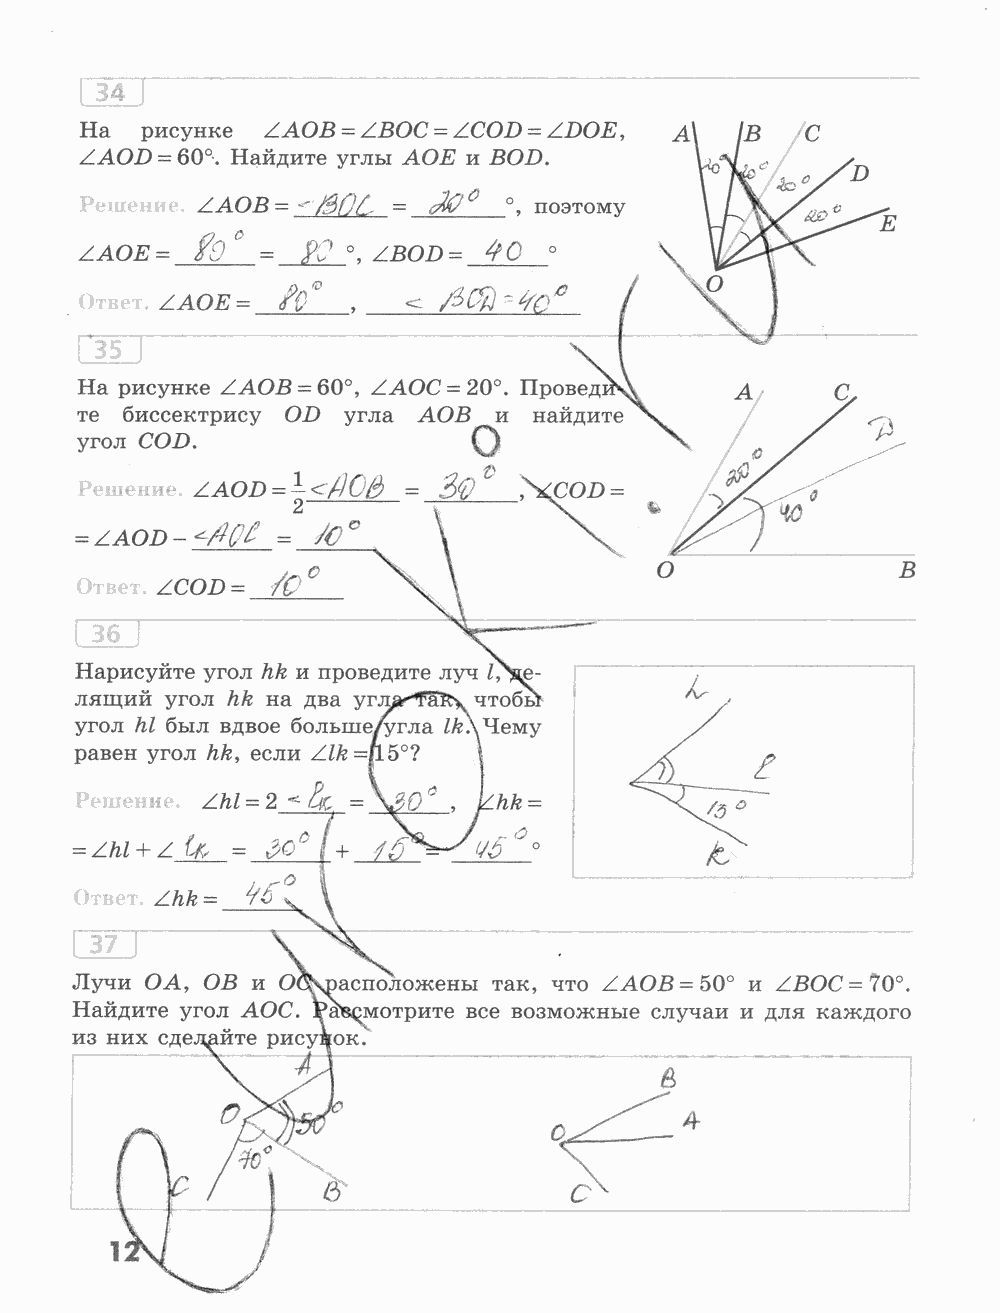 34
На рисунке ∠AOB = ∠BOC = ∠COD = ∠DOE,
∠AOD = 60°. Найдите углы AOE и BOD.
Решение. ∠AOB = <BOC = 20° °, поэтому
∠AOE = 80° = 80 °, ∠BOD = 40 °
Ответ. ∠AOE = 80°, < BOD = 40°
A B C D E O
20° 20° 20° 20°
35
На рисунке ∠AOB = 60°, ∠AOC = 20°. Проведи-
те биссектрису OD угла AOB и найдите
угол COD.
Решение. ∠AOD = 1/2 <AOB = 30°, ∠COD =
= ∠AOD − <AOC = 10°
Ответ. ∠COD = 10°
A C D
20° 40°
O B
36
Нарисуйте угол hk и проведите луч l, де-
лящий угол hk на два угла так, чтобы
угол hl был вдвое больше угла lk. Чему
равен угол hk, если ∠lk = 15°?
Решение. ∠hl = 2 <lk = 30°, ∠hk =
= ∠hl + ∠ lk = 30° + 15° = 45° °
Ответ. ∠hk = 45°
h
l
15°
k
37
Лучи OA, OB и OC расположены так, что ∠AOB = 50° и ∠BOC = 70°.
Найдите угол AOC. Рассмотрите все возможные случаи и для каждого
из них сделайте рисунок.
A
O 50°
70°
C B
B
O A
C
12